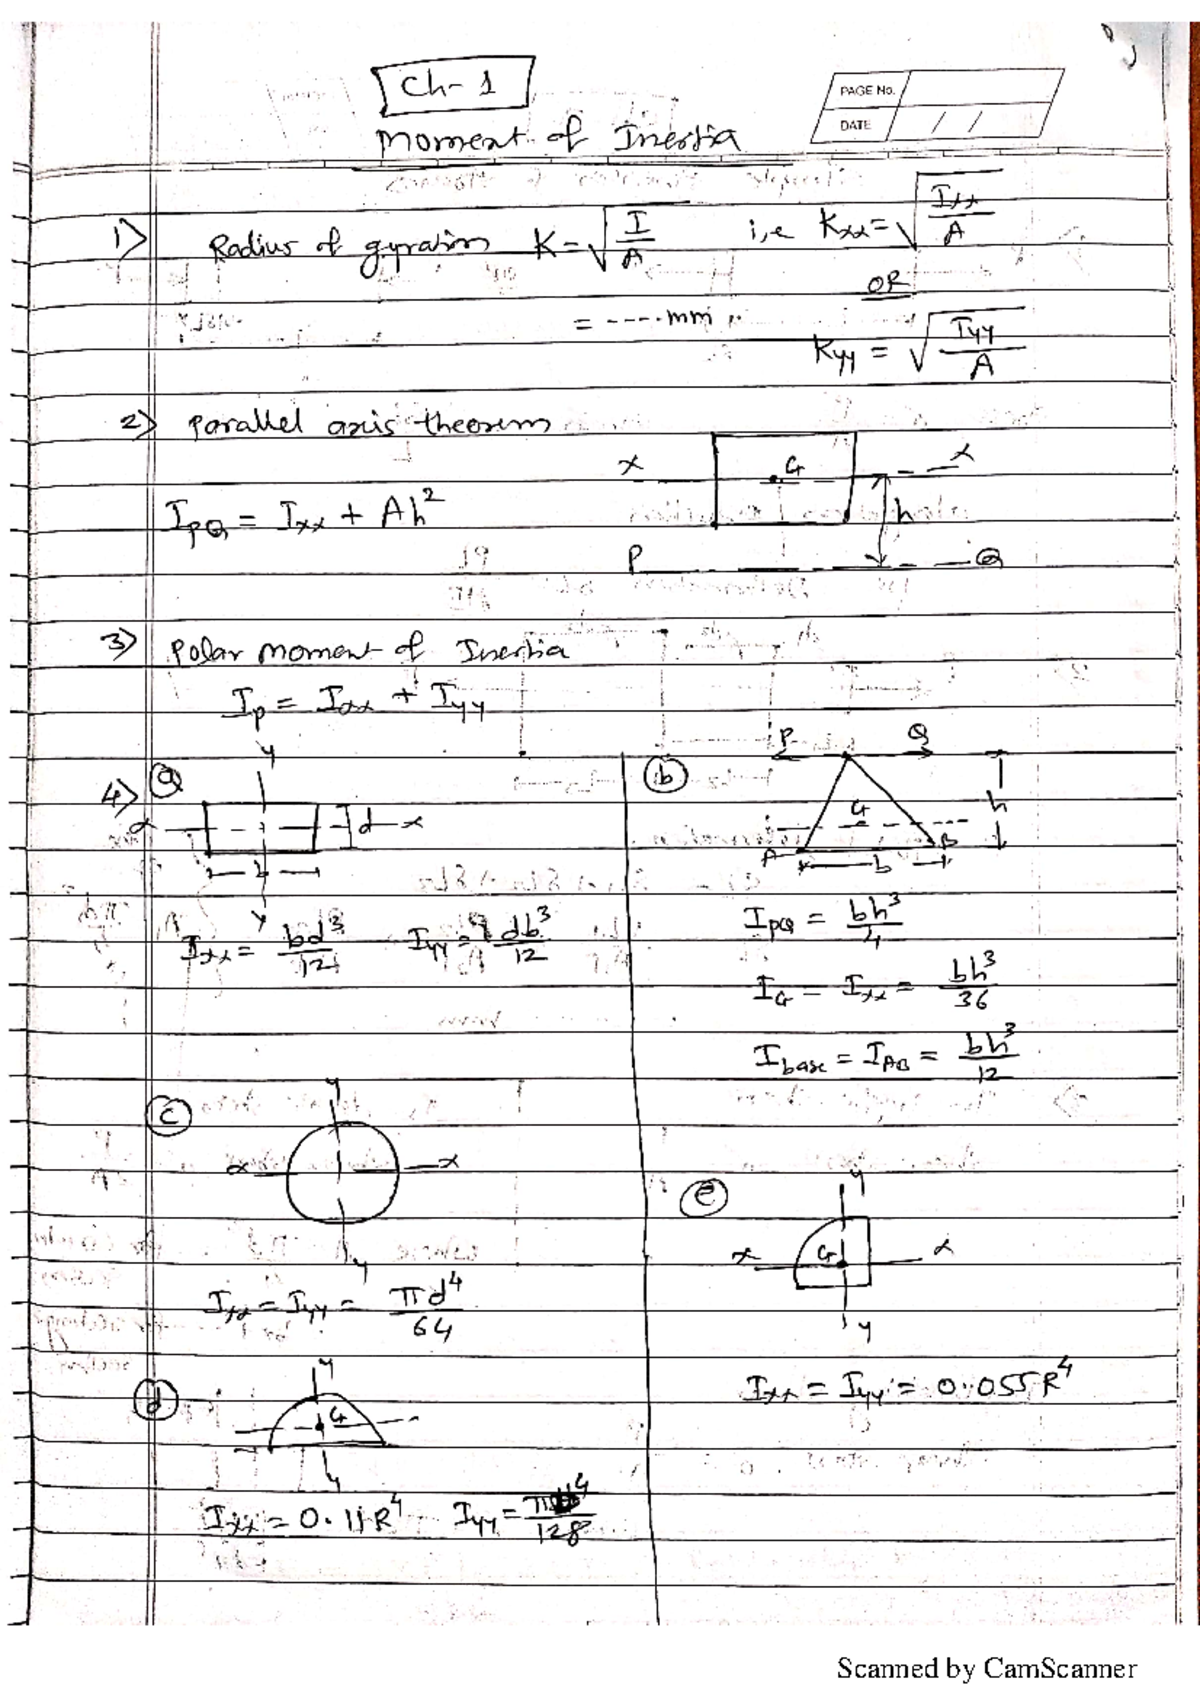 Ch-1
PAGE No.
DATE / /
Moment of Inertia
1) Radius of gyration K = √(I/A) i,e Kxx = √(Ixx/A)
OR
= ----mm
Kyy = √(Iyy/A)
2) parallel axis theorem
x G x
IPQ = Ixx + Ah² h
P Q
3) Polar moment of Inertia
Ip = Ixx + Iyy
4) a
y
x d x
b
y
Ixx = bd³/12 Iyy = db³/12
b
P Q
G h
A B
b
IPQ = bh³/4
IG = Ixx = bh³/36
Ibase = IAB = bh³/12
c
y
x x
y
Ixx = Iyy = πd⁴/64
d
y
G
y
Ixx = 0.11R⁴ Iyy = π ⁴/128
e
y
x G x
y
Ixx = Iyy = 0.055R⁴
Scanned by CamScanner